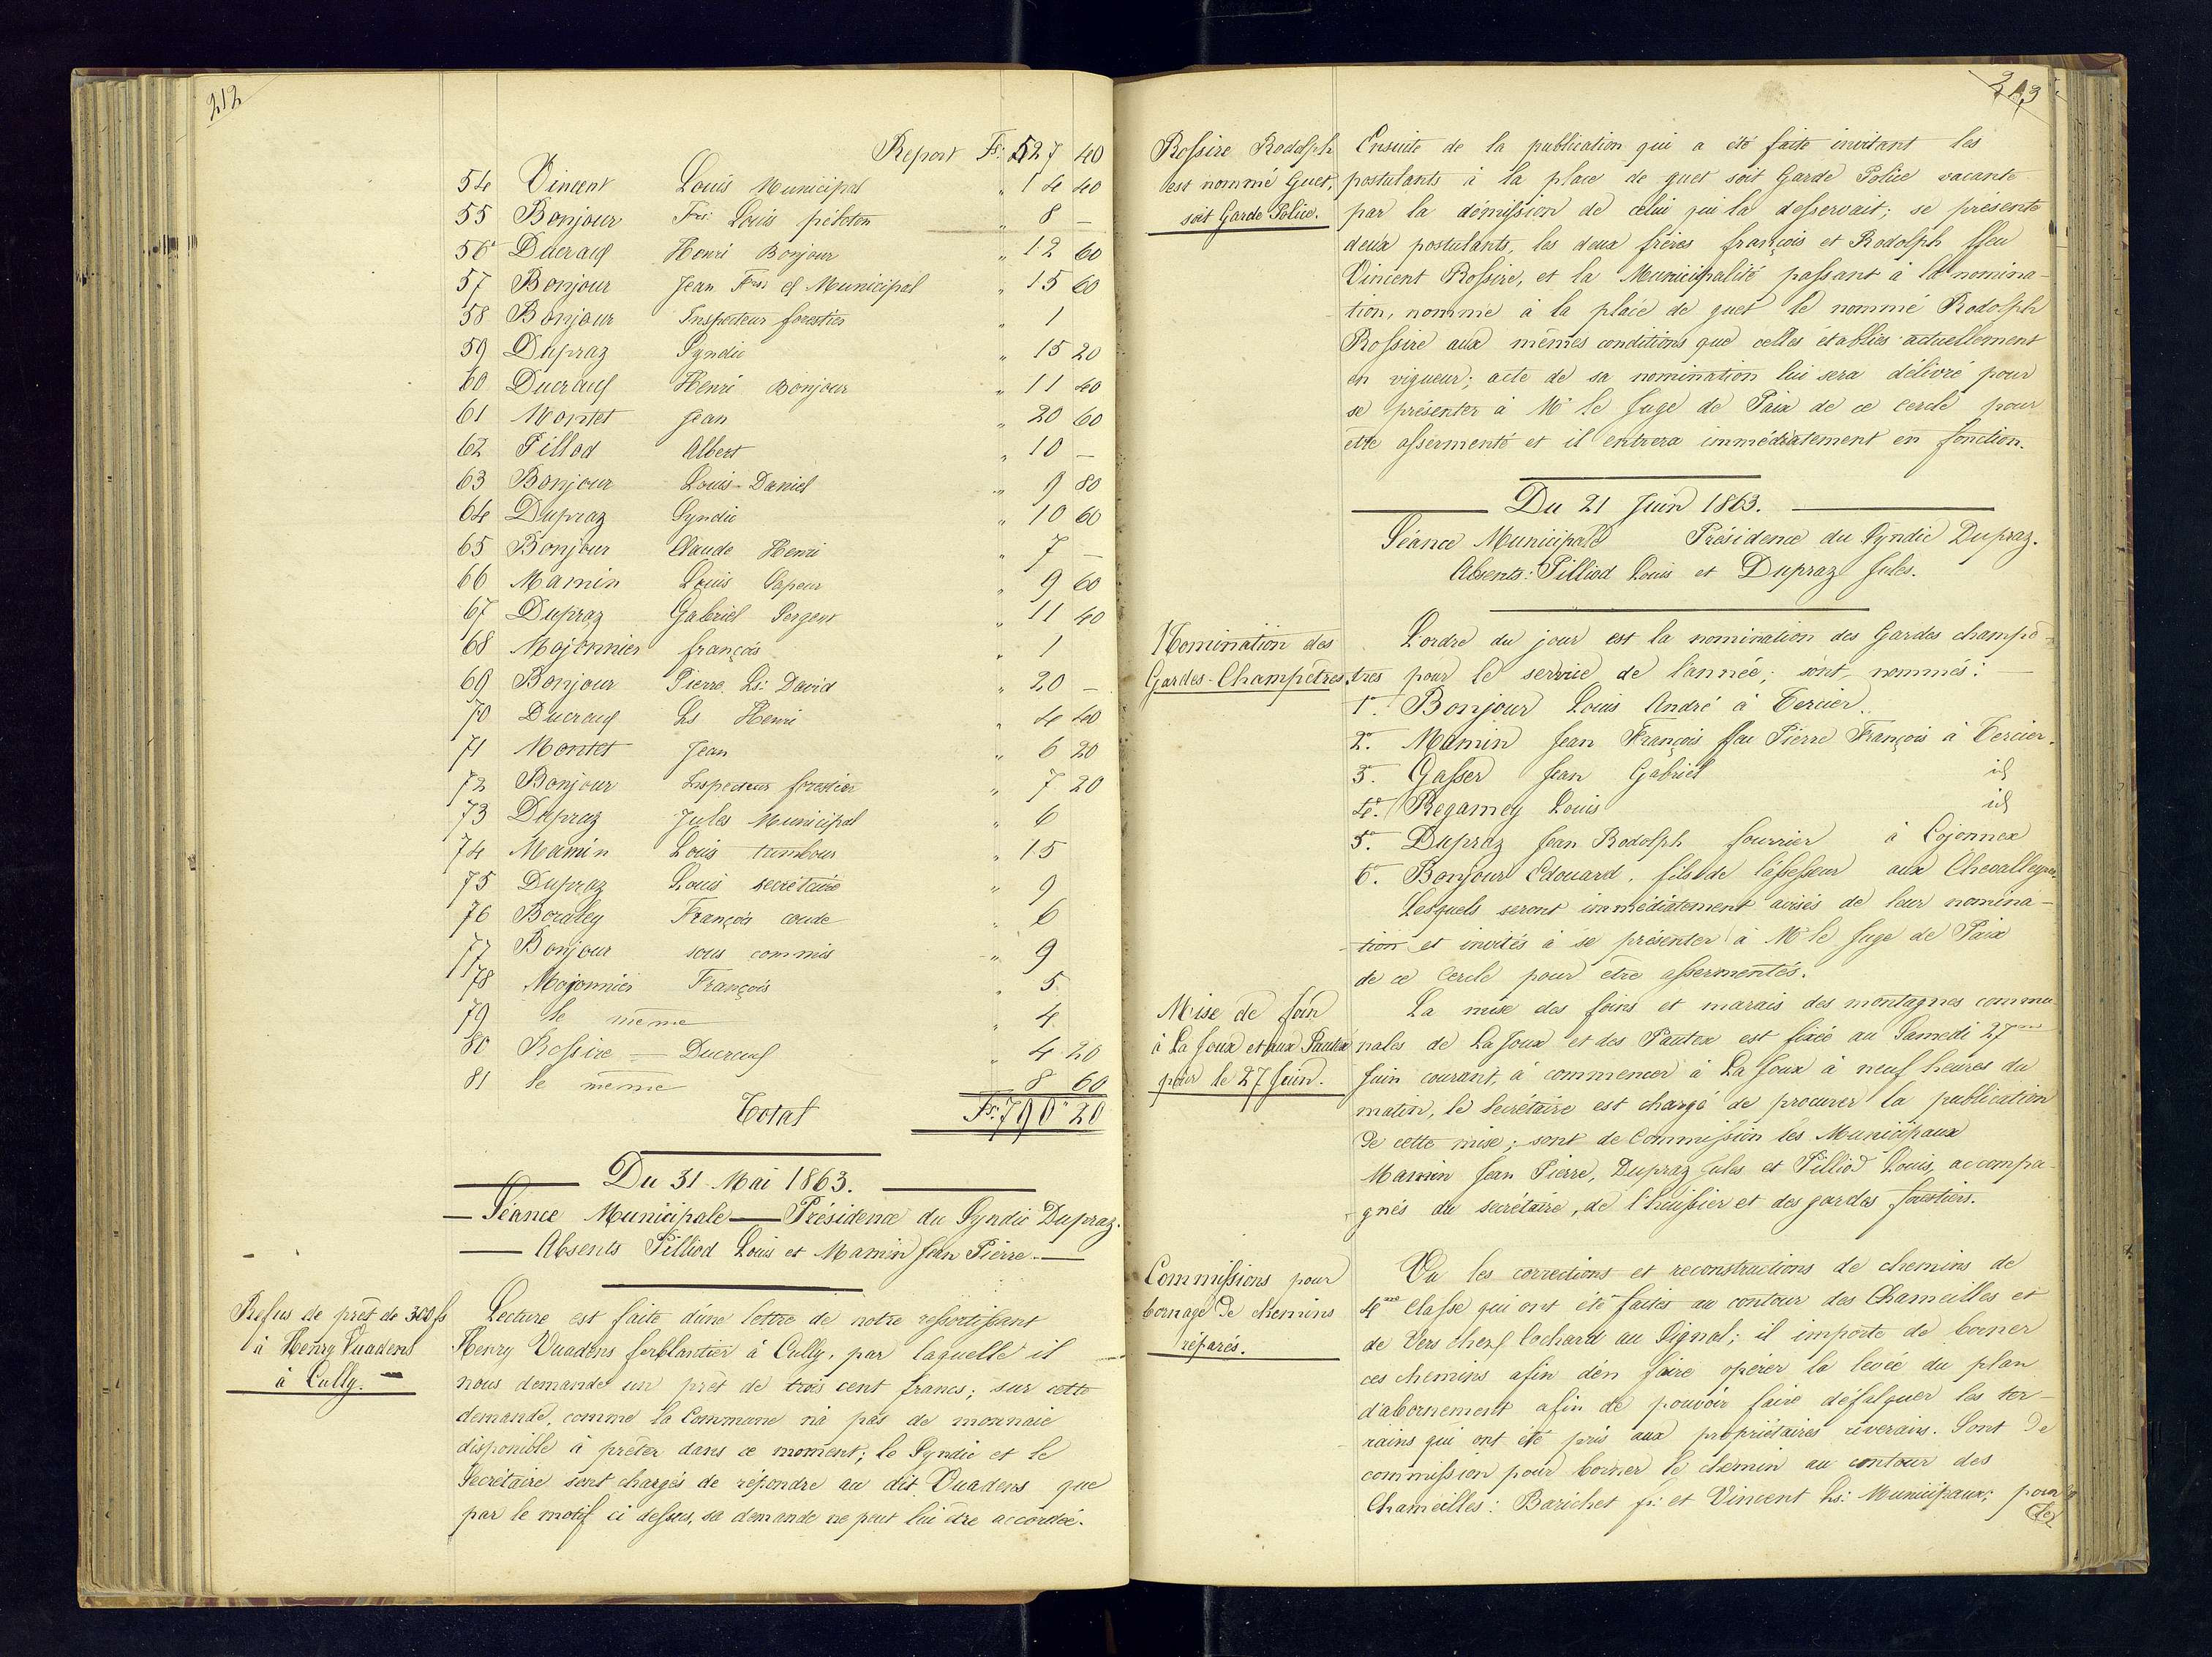 212
Report Fr: 527 40
54 Vincent Louis Municipal " 14 40
55 Bonjour Fois: Louis piéteton " 8 —
56 Ducraux Henri Bonjour " 12 60
57 Bonjour Jean Fois cl Municipal " 15 60
58 Bonjour Inspecteur forestier " 1
59 Dupraz Syndic " 15 20
60 Ducraux Henri Bonjour " 11 40
61 Montet Jean " 20 60
62 Pilliod Albert " 10 —
63 Bonjour Louis-Daniel " 9 80
64 Dupraz Syndic " 10 60
65 Bonjour Claude Henri " 7 —
66 Mamin Louis Sapeur " 9 60
67 Dupraz Gabriel Sergent " 11 40
68 Majonnier françois " 1
69 Bonjour Pierre Ls: David " 20 —
70 Ducraux Ls Henri " 4 40
71 Montet Jean " 6 20
72 Bonjour Inspecteur forestier " 7 20
73 Dupraz Jules Municipal " 6
74 Mamin Louis tambour " 15
75 Dupraz Louis secrétaire " 9
76 François coude " 6
77 Bonjour sous commis " 9
78 Majonnier François " 5
79 le même " 4
80 Rossire — Ducraux " 4 20
81 le même 8 60
Total Fr: 790" 20
Du 31 Mai 1863.
Séance Municipale — Présidence du Syndic Dupraz.
Absents Pilliod Louis et Mamin Jean Pierre.
Refus de prêt de 300 fs
à Henry Vuadens
à Cully.
Lecture est faite d'une lettre de notre ressortissant
Henry Vuadens ferblantier à Cully, par laquelle il
nous demande un prêt de trois cent francs; sur cette
demande, comme la Commune n'a pas de monnaie
disponible à prêter dans ce moment; le Syndic et le
Secrétaire sont chargés de répondre au dit Vuadens que
par le motif ci dessus, sa demande ne peut lui être accordée.
213
Rossire Rodolph
est nommé Guet,
soit Garde Police.
Ensuite de la publication qui a été faite invitant les
postulants à la place de guet soit Garde Police vacante
par la démission de celui qui la desservait; se présente
deux postulants, les deux frères françois et Rodolph ffeu
Vincent Rossire, et la Municipalité passant à la nomina-
tion, nomme à la place de guet le nommé Rodolph
Rossire aux mêmes conditions que celles établies actuellement
en vigueur; acte de sa nomination lui sera délivré pour
se présenter à Mr le Juge de Paix de ce cercle pour
être assermenté et il entrera immédiatement en fonction.
Du 21 Juin 1863.
Séance Municipale Présidence du Syndic Dupraz.
Absents: Pilliod Louis et Dupraz Jules.
Nomination des
Gardes-Champêtres
L'ordre du jour est la nomination des Gardes champê-
tres pour le service de l'année; sont nommés:
1o. Bonjour Louis André à Tercier.
2o. Mamin Jean François ffeu Pierre François à Tercier.
3o. Gasser Jean Gabriel id
4o. Regamey Louis id
5o. Dupraz Jean Rodolph fourrier à Cojonnex
6o. Bonjour Edouard, fils de l'assesseur aux Chevalleyres
Lesquels seront immédiatement avisés de leur nomina-
tion et invités à se présenter à Mr le Juge de Paix
de ce Cercle pour être assermentés.
Mise de foin
à La Joux et aux Pautex
pour le 27 Juin.
La mise des foins et marais des montagnes commu-
nales de La Joux et des Pautex est fixée au Samedi 27me
Juin courant, à commencer à La Joux à neuf heures du
matin, le secrétaire est chargé de procurer la publication
de cette mise; sont de Commission les Municipaux
Mamin Jean Pierre, Dupraz Jules et Pilliod Louis, accompa-
gnés du secrétaire, de l'huissier et des gardes forestiers.
Commissions pour
bornage de chemins
réparés.
Vu les corrections et reconstructions de chemins de
4me classe qui ont été faites au contour des Chameilles et
de Vers chez Cochard au Signal; il importe de borner
ces chemins afin d'en faire opérer la levée du plan
d'abornement afin de pouvoir faire défalquer les ter-
rains qui ont été pris aux propriétaires riverains. Sont de
commission pour borner le chemin au contour des
Chameilles: Barichet fs: et Vincent Ls: Municipaux; pour